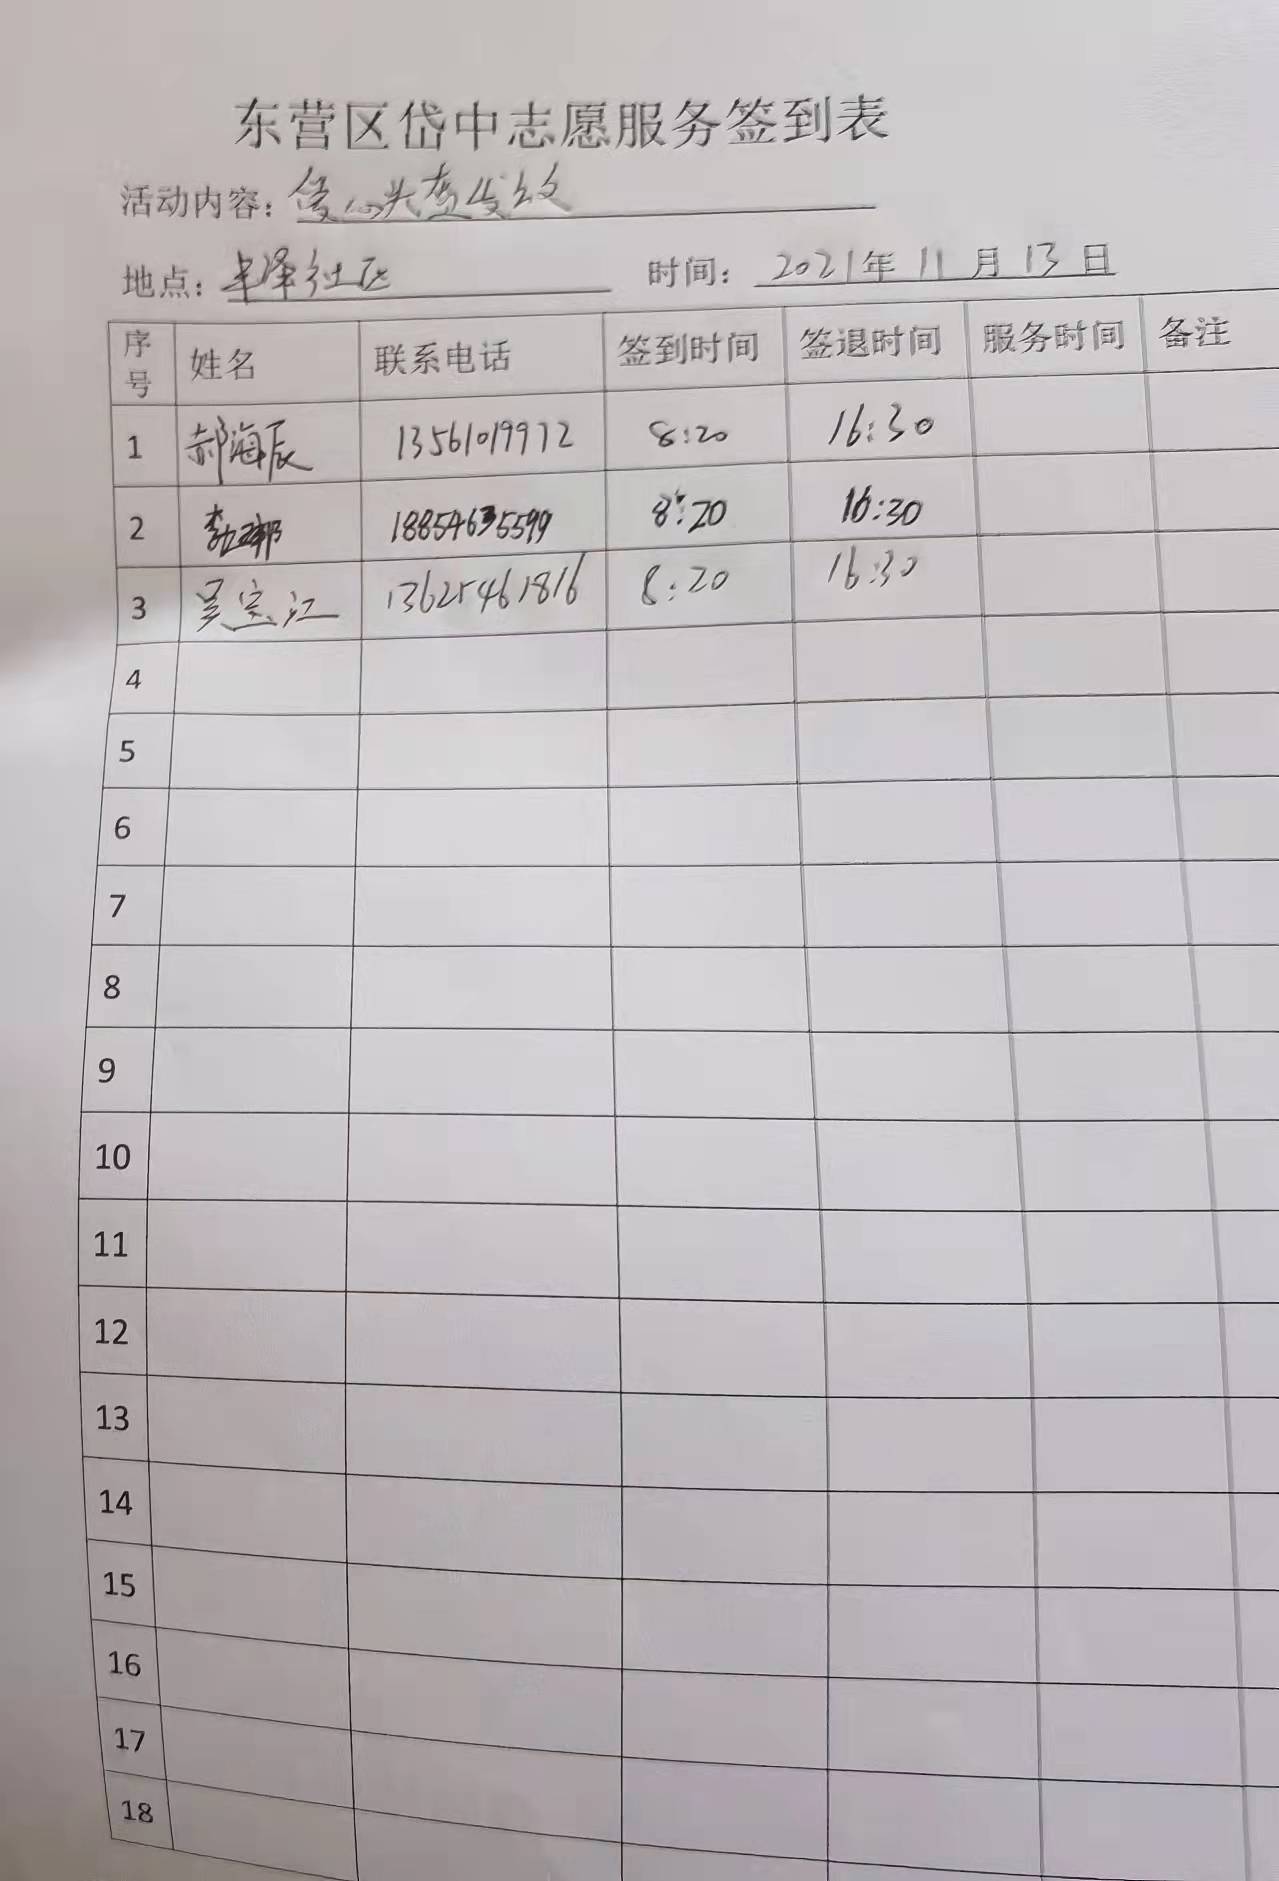 东营区岱中志愿服务签到表
活动内容: 爱心头盔发放
地点: 丰泽社区 时间: 2021年11月13日
序号 姓名 联系电话 签到时间 签退时间 服务时间 备注
1 郝海辰 13561019972 8:20 16:30
2 18854635599 8:20 16:30
3 吴宝江 13625461816 8:20 16:30
4
5
6
7
8
9
10
11
12
13
14
15
16
17
18